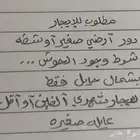 مطلوب للإيجار
دور أرضي صغير أو شقه
شرط وجود الحوش ...
بشمال حايل فقط
هيجار شهري ألفين أو أقل
عايله صغيره